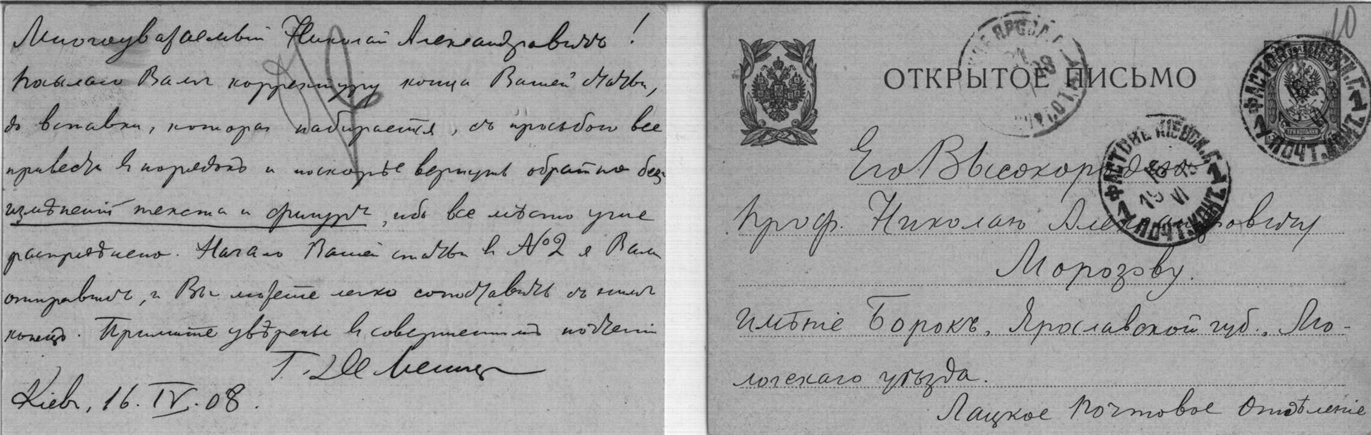 Многоуважаемый Николай Александровичъ!
Посылаю Вамъ корректуру конца Вашей статьи,
до вставки, которая набирается, съ просьбою все
привести въ порядокъ и поскорѣе вернуть обратно без
измѣненій текста и фигуръ, ибо все мѣсто уже
распредѣлено. Начало Вашей статьи въ №2 я Вамъ
отправилъ, и Вы можете легко сопоставить съ нимъ
конецъ. Примите увѣренье въ совершенномъ почтеніи
Кіевъ, 16. IV. 08.
10
ОТКРЫТОЕ ПИСЬМО
ФАСТОВЪ КІЕВСК. Г.
ПОЧТ.
ФАСТОВЪ КІЕВСК. Г.
19 VI
ПОЧТ.
Его Высокородію
Проф. Николаю Александровичу
Морозову.
Имѣніе Борокъ, Ярославской губ., Мо-
логскаго уѣзда.
Лацкое Почтовое Отдѣленіе